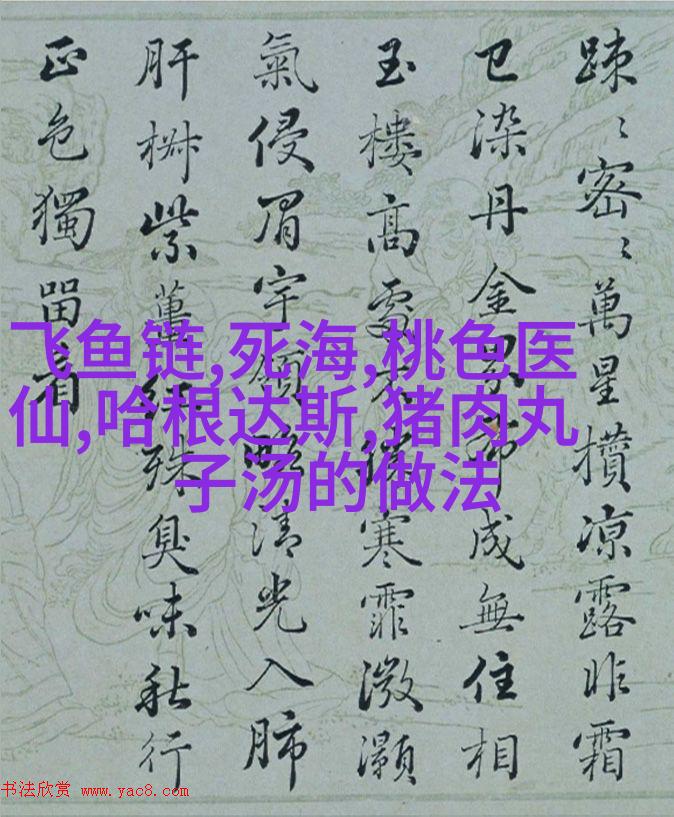 踈〻密〻萬星攢凉露昨霜
已染丹金界布成無住相
玉樓高處寒霏微灝
氣侵眉宇領略清光入肺
肝紫殊臭味秋行
正色獨留看
飞鱼链,死海,桃色医
仙,哈根达斯,猪肉丸
子汤的做法
书法欣赏 www.yac8.com